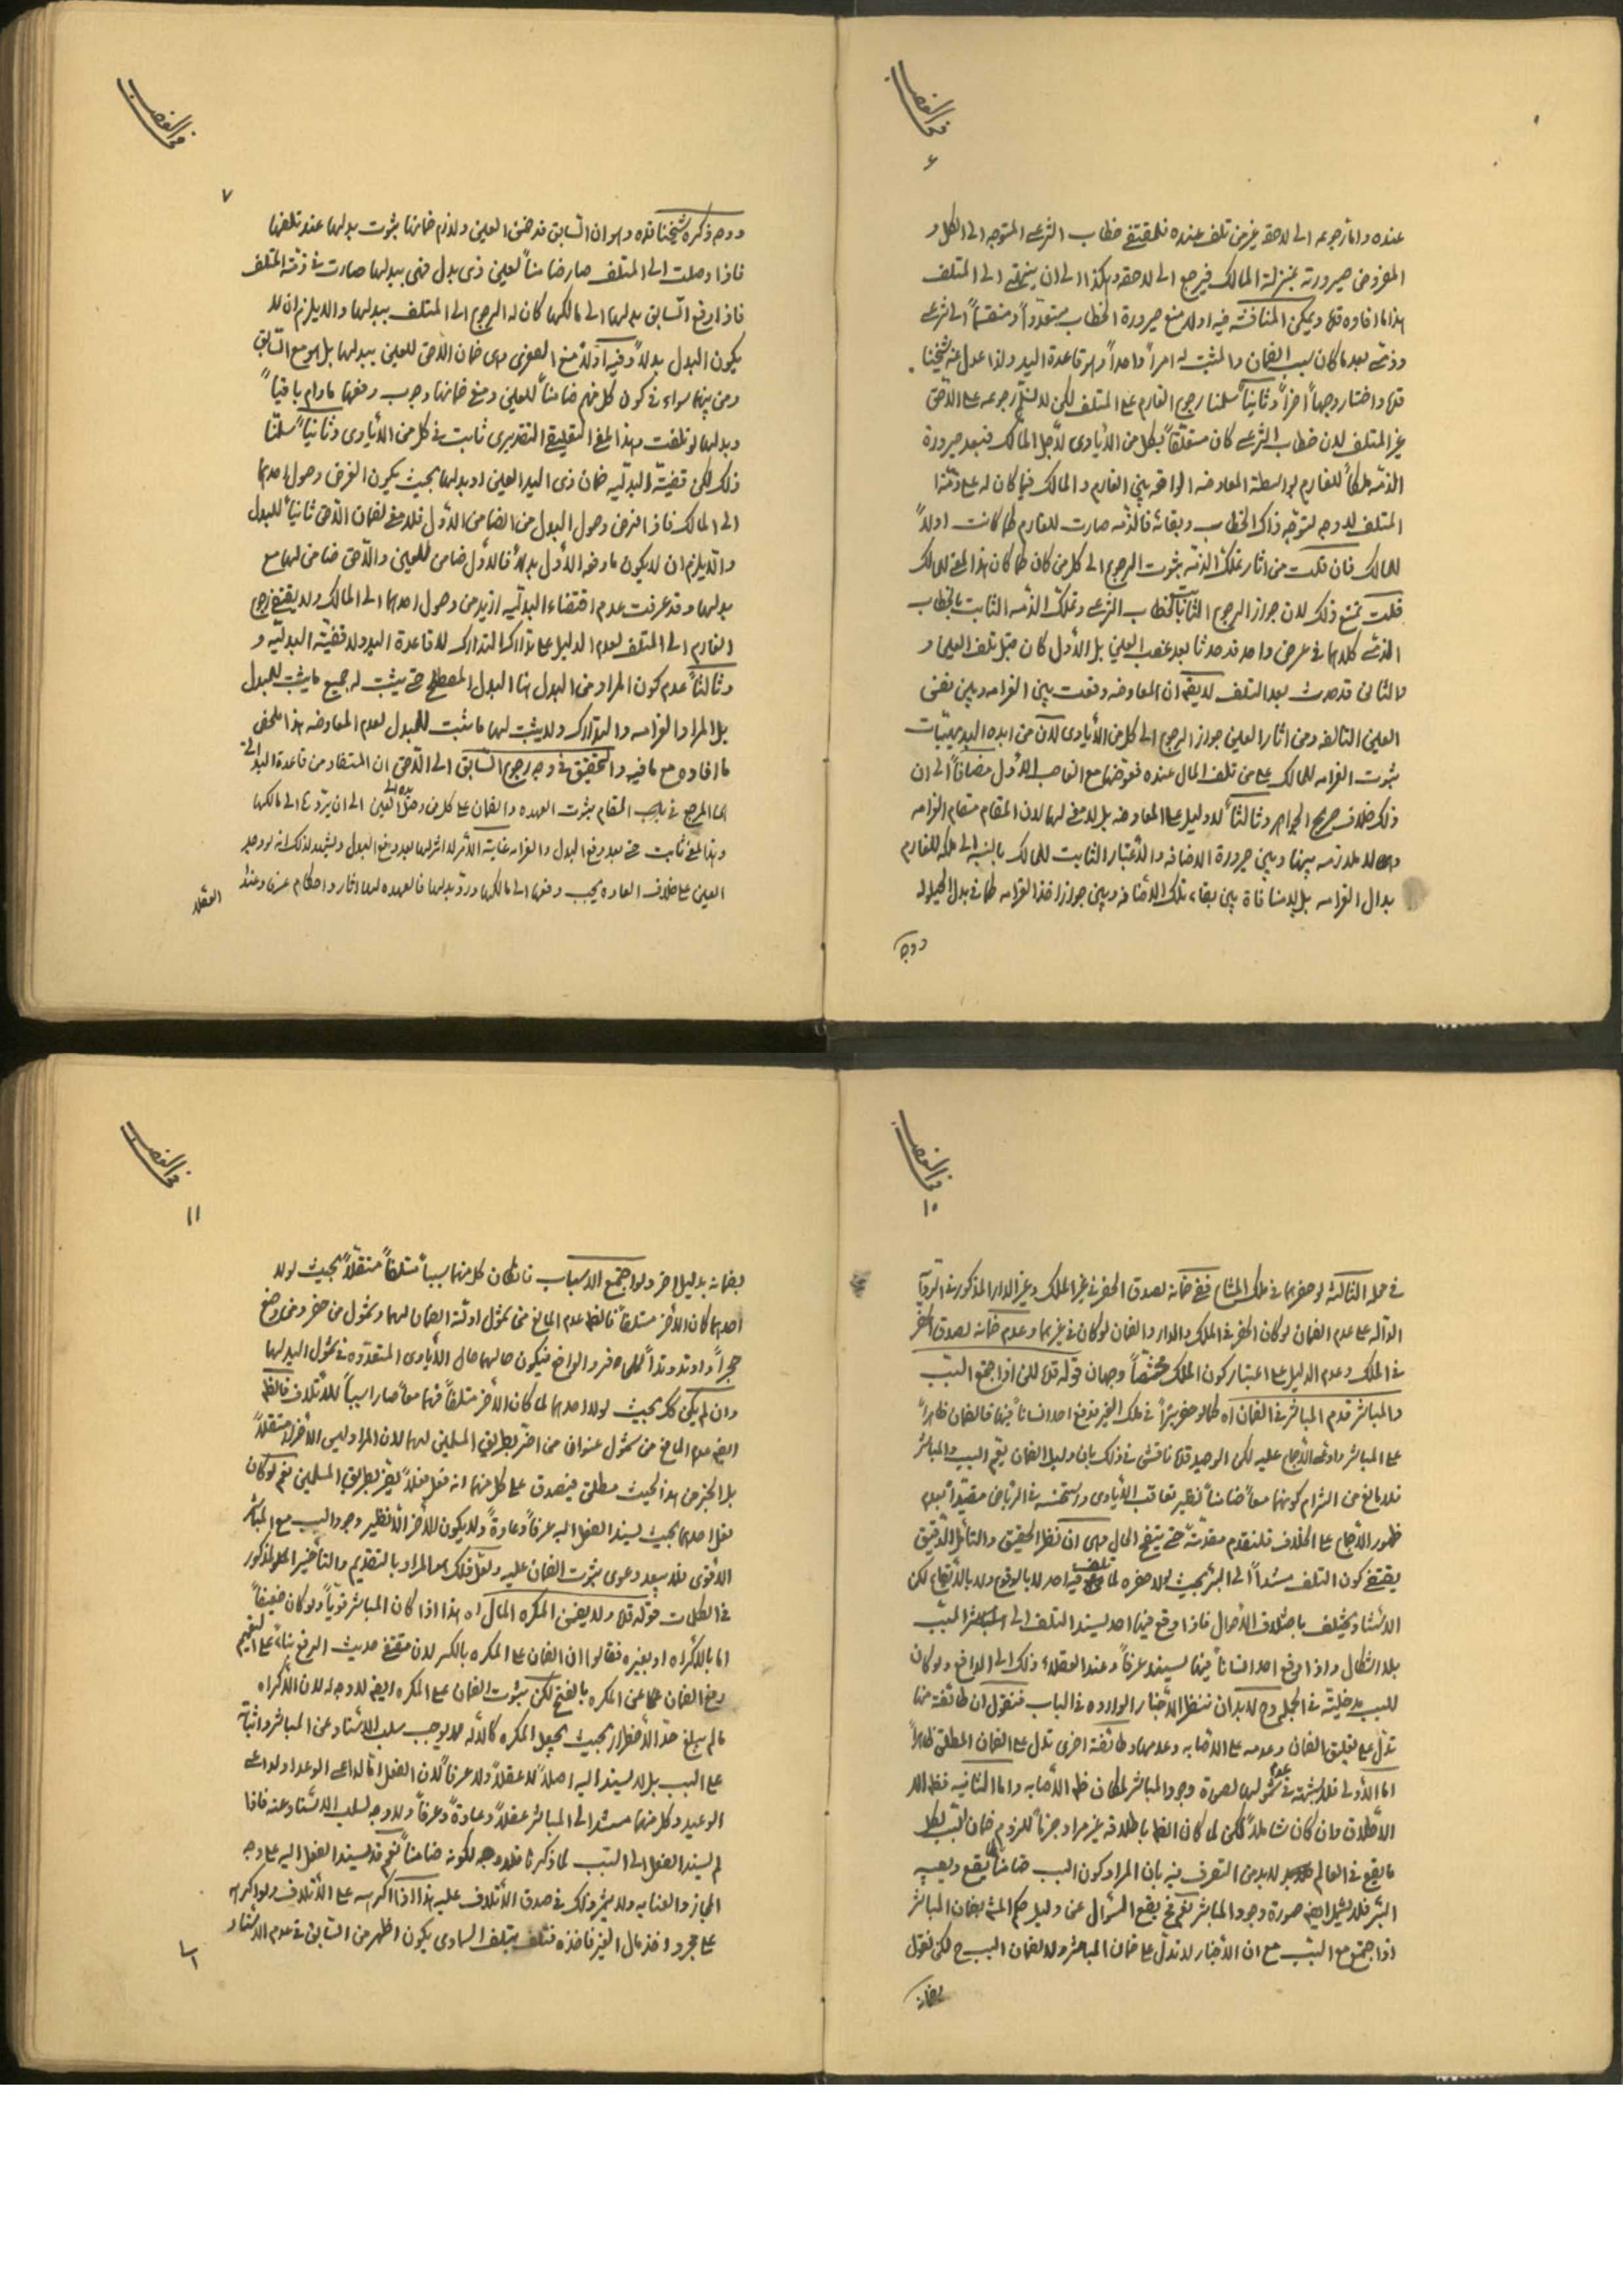 في الغصب
۶
عنده واما رجوعه الى لاحقه غير من تلف عنده فلمقتضى خطاب الشرعى المتوجه الى الكل و
المفروض صيرورته بمنزلة المالك فيرجع الى لاحقه وهكذا الى ان ينتهى الى المتلف
هذا ما افاده قده ويمكن المناقشة فيه اولا منع صيرورة الخطاب متعددا ومنقسما الى شرعى
وذمى بعد ما كان سبب الضمان والمثبت له امرا واحدا وهو قاعدة اليد ولذا عدل عنه شيخنا
قده واختار وجها اخرا وثانيا سلمنا رجوع الغارم على المتلف لكن لا نسلم رجوعه على اللاحق
غير المتلف لان خطاب الشرعى كان متعلقا بكل من الايادى لاجل المالك فبعد صيرورة
الذمة ملكا للغارم بواسطة المعاوضه الواقعه بين الغارم والمالك فيما كان له على ذمة
المتلف لا وجه لتوجه ذاك الخطاب وبقائه فالذمه صارت للغارم كما كانت اولا
للمالك فان قلت من اثار تملك الذمة ثبوت الرجوع الى كل من كان كما كان هذا المعنى للمالك
قلت نمنع ذلك لان جواز الرجوع الثابت بالخطاب الشرعى وتملك الذمه الثابت بالخطاب
الذمى كلاهما في عرض واحد قد حدثا بعد غصب العين بل الاول كان قبل تلف العين و
الثانى قد حدث بعد التلف لا يقال ان المعاوضه وقعت بين الغرامه وبين نفس
العين التالفه ومن اثار العين جواز الرجوع الى كل من الايادى لان من ابده البديهيات
ثبوت الغرامه للمالك على من تلف المال عنده فعوضها مع الغاصب الاول مضافا الى ان
ذلك خلاف صريح الجواهر وثالثا لا دليل على المعاوضه بل لا معنى لها لان المقام مقام الغرامه
وهى لا ملازمه بينها وبين صيرورة الاضافه والاعتبار الثابت للمالك بالنسبة الى ملكه للغارم
بدال الغرامه بل لا منافاة بين بقاء تلك الاضافه وبين جواز اخذ الغرامه كما في بدل الحيلوله
ووجه
في الغصب
۷
ووجه ذكره شيخنا قده وهو ان السابق قد ضمن العين ولازم ضمانها ثبوت بدلها عند تلفها
فاذا وصلت الى المتلف صار ضامنا لعين ذى بدل فهى ببدلها صارت في ذمة المتلف
فاذا دفع السابق بدلها الى مالكها كان له الرجوع الى المتلف ببدلها والا يلزم ان لا
يكون البدل بدلا وفيه اولا منع الصغرى وهى ضمان اللاحق للعين ببدلها بل هو مع السابق
ومن بينهما سواء في كون كل منهم ضامنا للعين ومعنى ضمانها وجوب دفعها مادام باقيا
وبدلها لو تلفت وهذا المعنى التعليقى التقديرى ثابت في كل من الايادى وثانيا سلمنا
ذلك لكن قضية البدليه ضمان ذى اليد العين او بدلها بحيث يكون الغرض وصول احدهما
الى المالك فاذا فرض وصول البدل من الضامن الاول فلا معنى لضمان اللاحق ثانيا للبدل
والا يلزم ان لا يكون ما دفعه الاول بدلا فالاول ضامن للعين واللاحق ضامن لها مع
بدلها وقد عرفت عدم اقتضاء البدليه ازيد من وصول احدهما الى المالك ولا يقتضى رجوع
الغارم الى المتلف لعدم الدليل على تدارك التدارك لا قاعدة اليد ولا قضية البدليه و
وثالثا عدم كون المراد من البدل هنا البدل المصطلح حتى يثبت له جميع ما يثبت للمبدل
بل المراد الغرامه والتدارك ولا يثبت لها ما يثبت للمبدل لعدم المعاوضه هذا ملخص
ما افاده مع ما فيه والتحقيق في وجه رجوع السابق الى اللاحق ان المستفاد من قاعدة اليد التى
هى المرجع في باب المقام ثبوت العهده والضمان على كل من وصل اليه العين الى ان يؤدى الى مالكها
وهذا المعنى ثابت حتى بعد دفع البدل والغرامه غاية الامر لا اثر لها بعد دفع البدل ويشهد لذلك انه لو وجد
العين على خلاف العاده يجب دفعها الى مالكها ورد بدلها فالعهده لها اثار واحكام عرفا وعند
العقلاء
في الغصب
۱۰
في جملة الثالثة لو حفرهما في ملك المشاع ففى ضمانه لصدق الحفر في غير الملك وغير الدار المذكور في الروايه
الدالة على عدم الضمان لو كان الحفر في الملك والدار والضمان لو كان في غيرهما وعدم ضمانه لصدق الحفر
في الملك وعدم الدليل على اعتبار كون الملك مختصا وجهان قوله قده الثانى اذا اجتمع السبب
والمباشر قدم المباشر في الضمان اه كما لو حفر بئرا في ملك الغير فدفع احد انسانا فيها فالضمان ظاهرا
على المباشر وادعى الاجماع عليه لكن الوحيد قده ناقش في ذلك بان دليل الضمان يعم السبب والمباشر
فلا مانع من التزام كونهما معا ضامنا نظير تعاقب الايادى واستحسنه في الرياض مقيدا بعدم
ظهور الاجماع على الخلاف فلنقدم مقدمة حتى يتضح الحال وهى ان نظر الحقيق والتأمل الدقيق
يقتضى كون التلف مستندا الى البئر بحيث لولا حفره لما تلف فيه احد لا بالوقوع ولا بالايقاع لكن
الاستناد يختلف باختلاف الاحوال فاذا وقع فيها احد يستند التلف الى المسبب
بلا اشكال واذا دفع احد انسانا فيها يستند عرفا وعند العقلاء ذلك الى الدافع ولو كان
للسبب مدخلية في الجمله وح لابد ان ننظر الاخبار الوارده في الباب فنقول ان طائفة منها
تدل على تعليق الضمان وعدمه على الاصابه وعدمها وطائفة اخرى تدل على الضمان المطلق ظاهرا
اما الاولى فلا شبهة في عدم شمولها لصورة وجود المباشر لمكان ظ الاصابه واما الثانيه فظ الا
الاطلاق وان كان شاملا لكن لما كان الظ باطلاقه غير مراد جزما للزوم ضمان السبب لكل
ما يقع في العالم لابد من التصرف فيه بان المراد كون السبب ضامنا لما يقع ويصيب
البئر فلا يشمل ايضا صورة وجود المباشر نعم ح يقع السؤال عن دليل حكم المش بضمان المباشر
اذا اجتمع مع السبب مع ان الاخبار لا تدل على ضمان المباشر ولا لضمان السبب ح لكن نقول
بضمانه
في الغصب
۱۱
بضمانه بدليل اخر ولو اجتمع الاسباب فان كان كل منهما سببا متلفا مستقلا بحيث لولا
احدهما كان الاخر متلفا فالظ عدم المانع من شمول ادلة الضمان لهما وشمول من حفر ومن وضع
حجرا واوتد وتدا لكل من الحافر والواضع فيكون حالهما حال الايادى المتعدده في شمول اليد لها
وان لم يكن كك بحيث لولا احدهما لما كان الاخر متلفا فهما معا صارا سببا للاتلاف فالظ
ايضا عدم المانع من شمول عنوان من اضر بطريق المسلمين لهما لان المراد ليس الاضرار مستقلا
بل الخبر من هذا الحيث مطلق فيصدق على كل منهما انه فعل فعلا يضر بطريق المسلمين نعم لو كان
فعل احدهما بحيث يستند الفعل اليه عرفا وعادة ولا يكون للاخر اثر نظير وجود السبب مع المباشر
الاقوى فلا يبعد دعوى ثبوت الضمان عليه ولعل ذلك هو المراد بالتقديم والتأخير المذكور
في الكلمات قوله قده ولا يضمن المكره المال اه هذا اذا كان المباشر قويا ولو كان ضعيفا
اما بالاكراه او بغيره فقالوا ان الضمان على المكره بالكسر لان مقتضى حديث الرفع بناء على التعميم
رفع الضمان عما عن المكره بالفتح لكن ثبوت الضمان على المكره ايضا لا وجه له لان الاكراه
ما لم يبلغ حد الاضطرار بحيث يجعل المكره كالآله لا يوجب سلب الاستناد عن المباشر واثباته
على السبب بل لا يستند اليه اصلا لا عقلا ولا عرفا لان الفعل اما لداعى الوعد او لداعى
الوعيد وكل منهما مستند الى المباشر عقلا وعادة وعرفا ولا وجه لسلب الاستناد عنه فاذا
لم يستند الفعل الى السبب لما ذكرنا فلا وجه لكونه ضامنا نعم قد يستند الفعل اليه على وجه
المجاز والعنايه ولا يثمر ذلك في صدق الاتلاف عليه هذا اذا اكرهه على الاتلاف ولو اكره
على مجرد اخذ مال الغير فاخذه فتلف بتلف السماوى يكون اظهر من السابق في عدم الاستناد